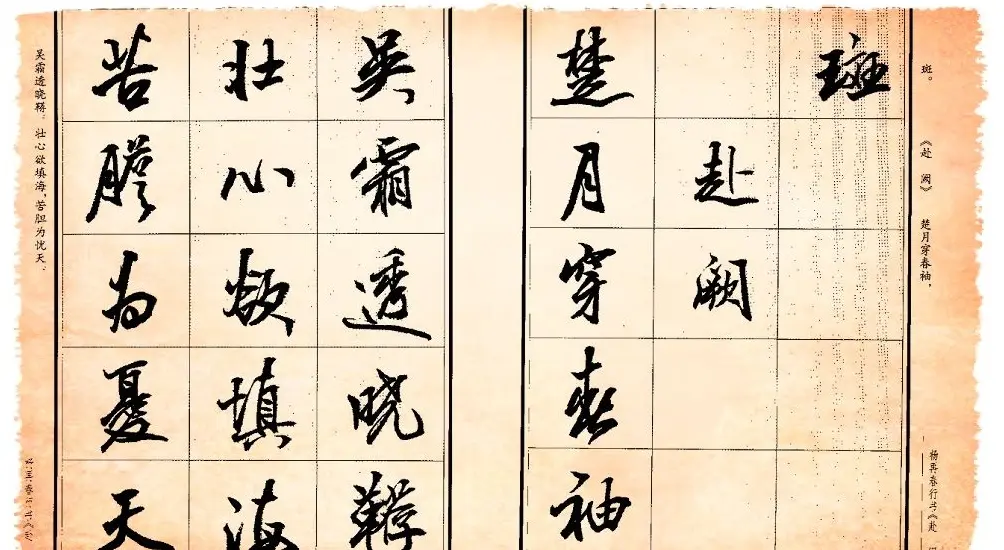 斑。 《赴 阙》 楚月穿春袖,
杨再春行书《赴
斑
赴阙
楚月穿春袖
吴霜透晓鞯
壮心欲填海
苦膽为憂天
吴霜透晓鞯。壮心欲填海,苦胆为忧天。